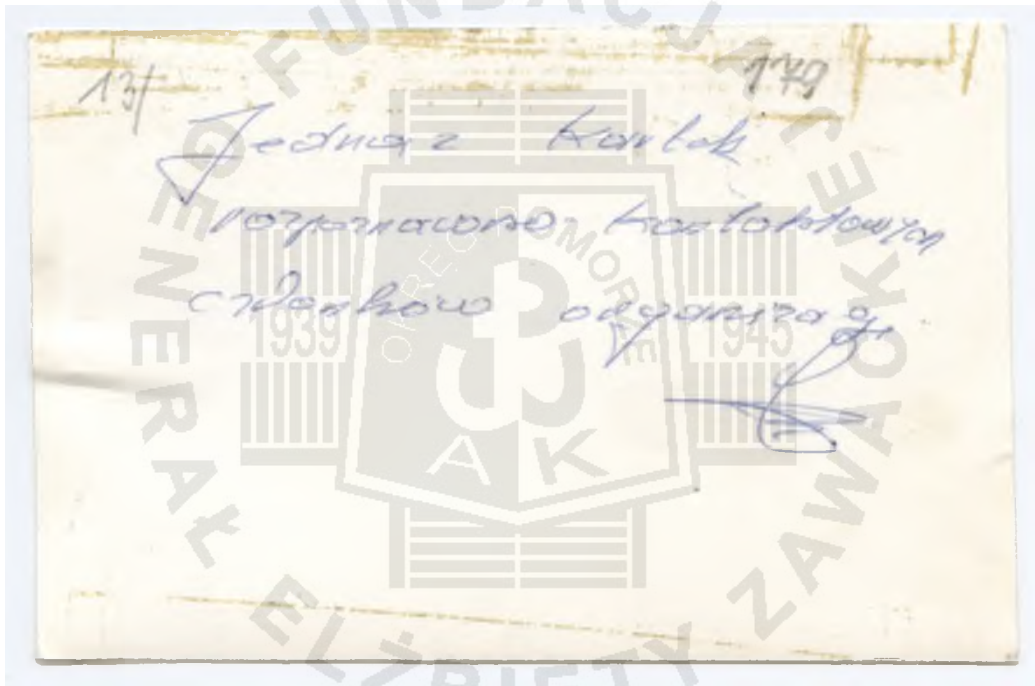 13/
179
Jedna z kartek
rozpoznawczo- kontaktowych
członków organizacji
FUNDACJA
GENERAŁ ELŻBIETY ZAWACKIEJ
OKRĘG POMORZE
1939
1945
AK